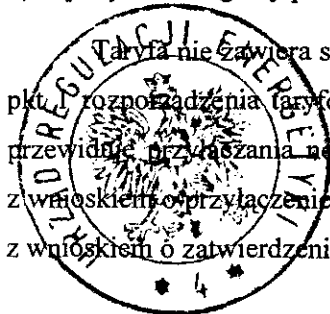 Taryfa nie zawiera s
pkt 1 rozporządzenia taryfo
przewiduje przyłączania no
z wnioskiem o przyłączenie
z wnioskiem o zatwierdzeni
URZĄD REGULACJI ENERGETYKI
* 4 *